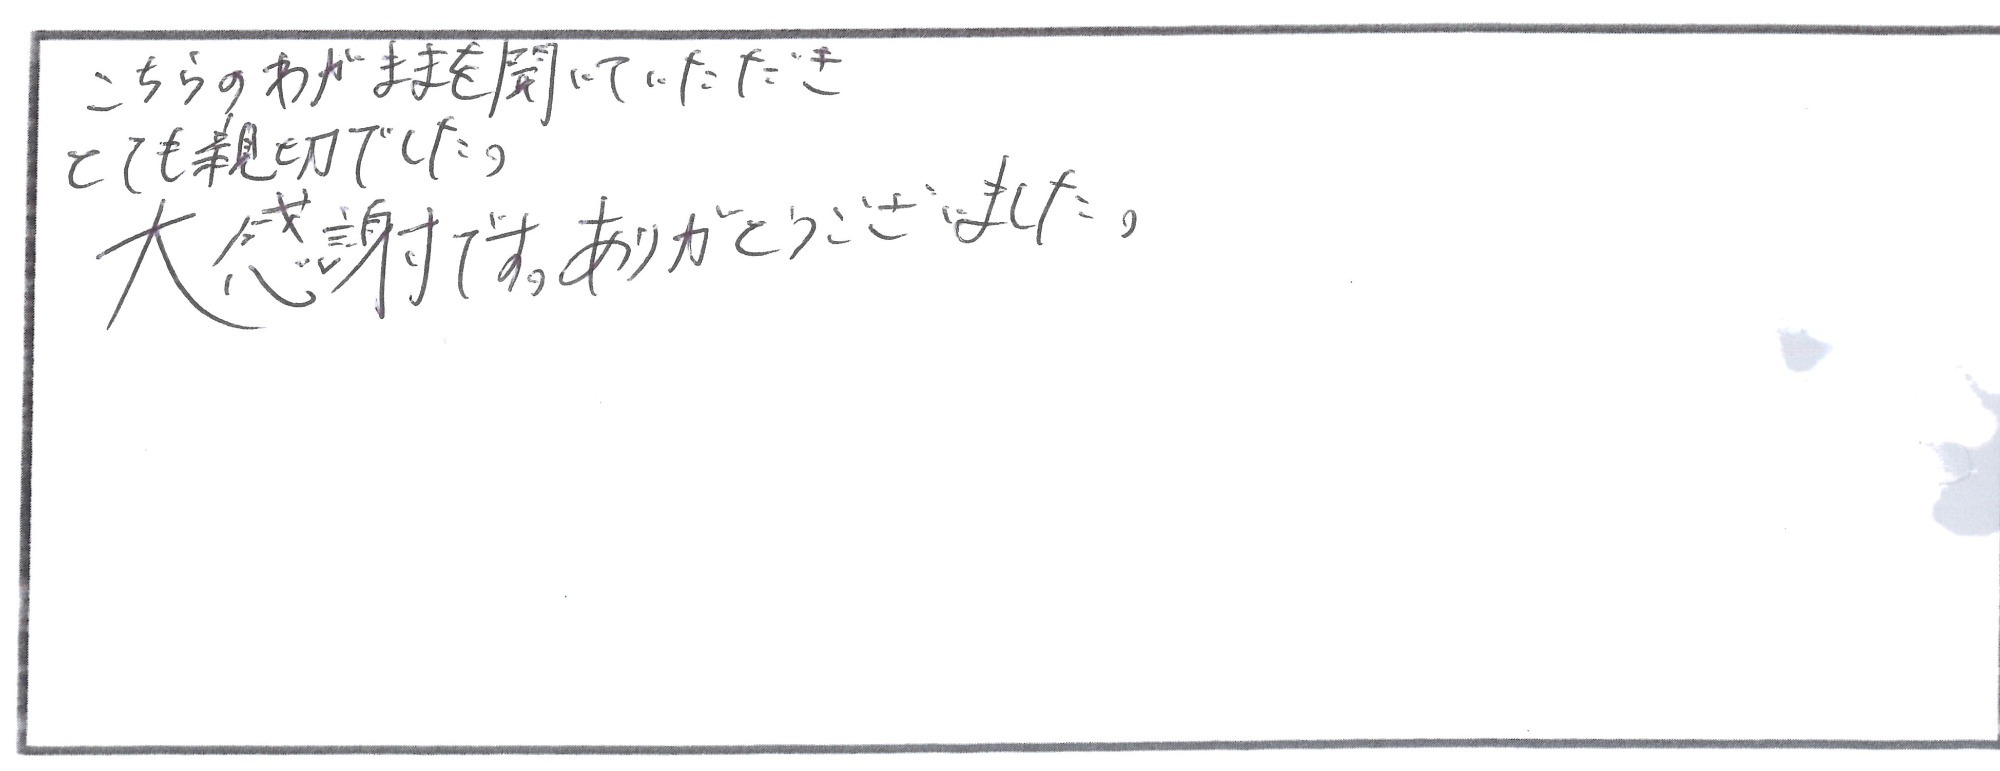 こちらのわがままを聞いていただき
とても親切でした。
大感謝です。ありがとうございました。